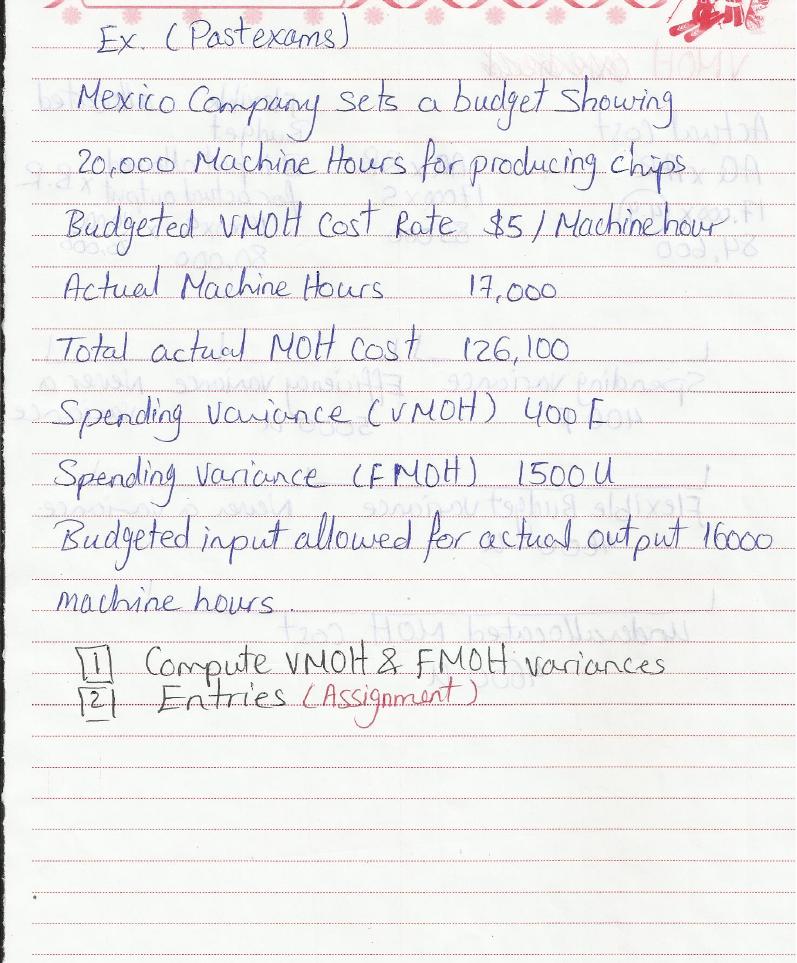 Ex. (Pastexams)
Mexico Company sets a budget showing
20,000 Machine Hours for producing chips
Budgeted VMOH Cost Rate $5 / Machine hour
Actual Machine Hours 17,000
Total actual MOH Cost 126,100
Spending Variance (VMOH) 400 F
Spending Variance (FMOH) 1500 U
Budgeted input allowed for actual output 16000
machine hours.
1 Compute VMOH & FMOH variances
2 Entries (Assignment)